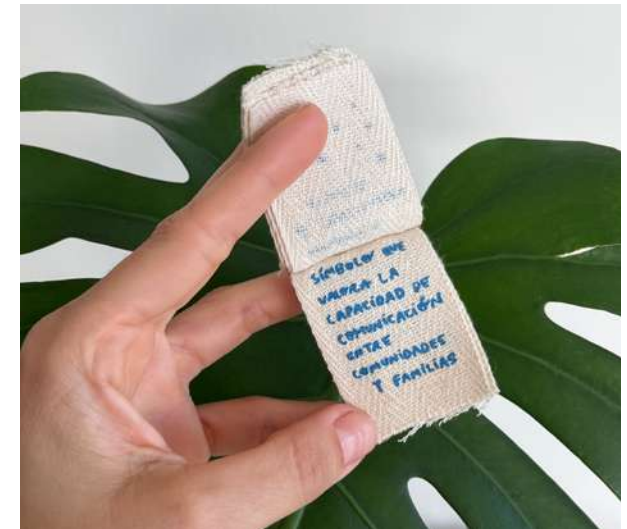 SÍMBOLO QUE
VALORA LA
CAPACIDAD DE
COMUNICACIÓN
ENTRE
COMUNIDADES
Y FAMILIAS